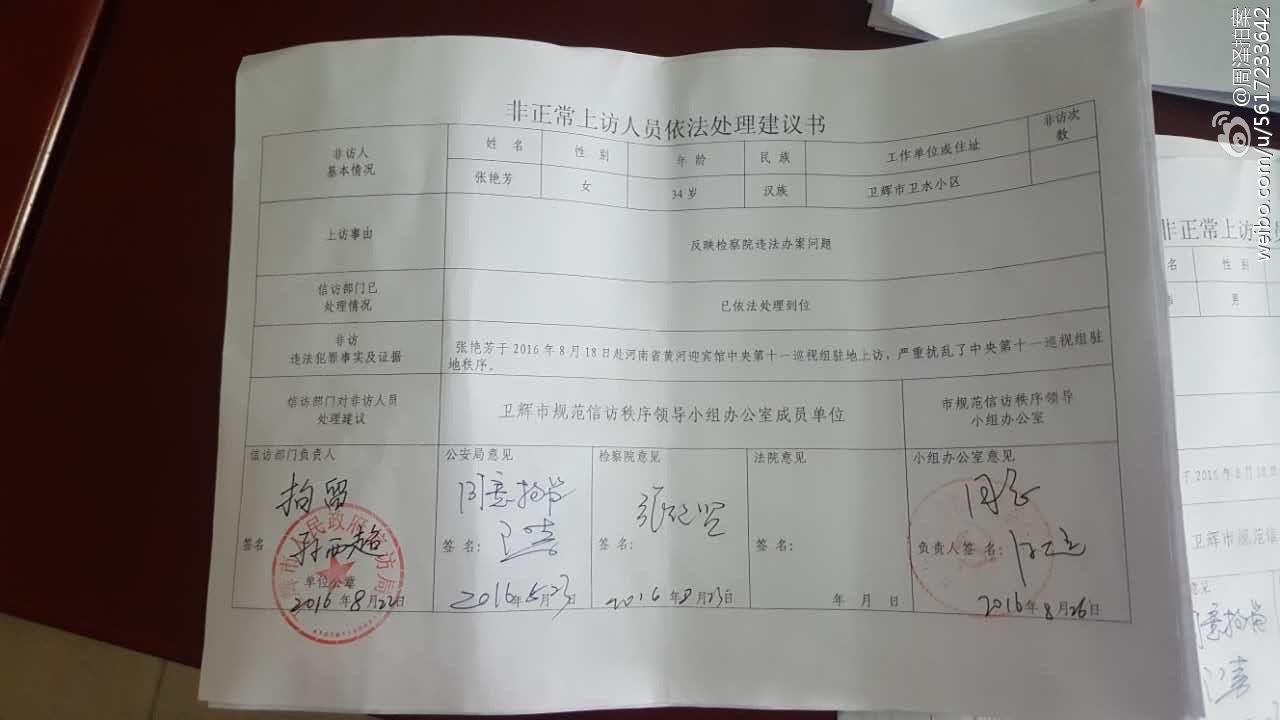 非正常上访人员依法处理建议书
非访人
基本情况
姓 名
性 别
年 龄
民 族
工作单位或住址
非访次
数
张艳芳
女
34岁
汉族
卫辉市卫水小区
上访事由
反映检察院违法办案问题
信访部门已
处理情况
已依法处理到位
非访
违法犯罪事实及证据
张艳芳于2016年8月18日赴河南省黄河迎宾馆中央第十一巡视组驻地上访,严重扰乱了中央第十一巡视组驻
地秩序。
信访部门对非访人员
处理建议
卫辉市规范信访秩序领导小组办公室成员单位
市规范信访秩序领导
小组办公室
信访部门负责人
拘留
签名
单位公章
2016年8月22日
公安局意见
同意拘留
签 名:
2016年8月23日
检察院意见
签 名:
2016年8月23日
法院意见
签 名:
年 月 日
小组办公室意见
同意
负责人签 名:
2016年8月26日
市人民政府信访局
非正常上访
名
性 别
男
于2016年8月18日
卫辉市规范信
意见
同意拘留
@周泽拍案
weibo.com/u/5617233642